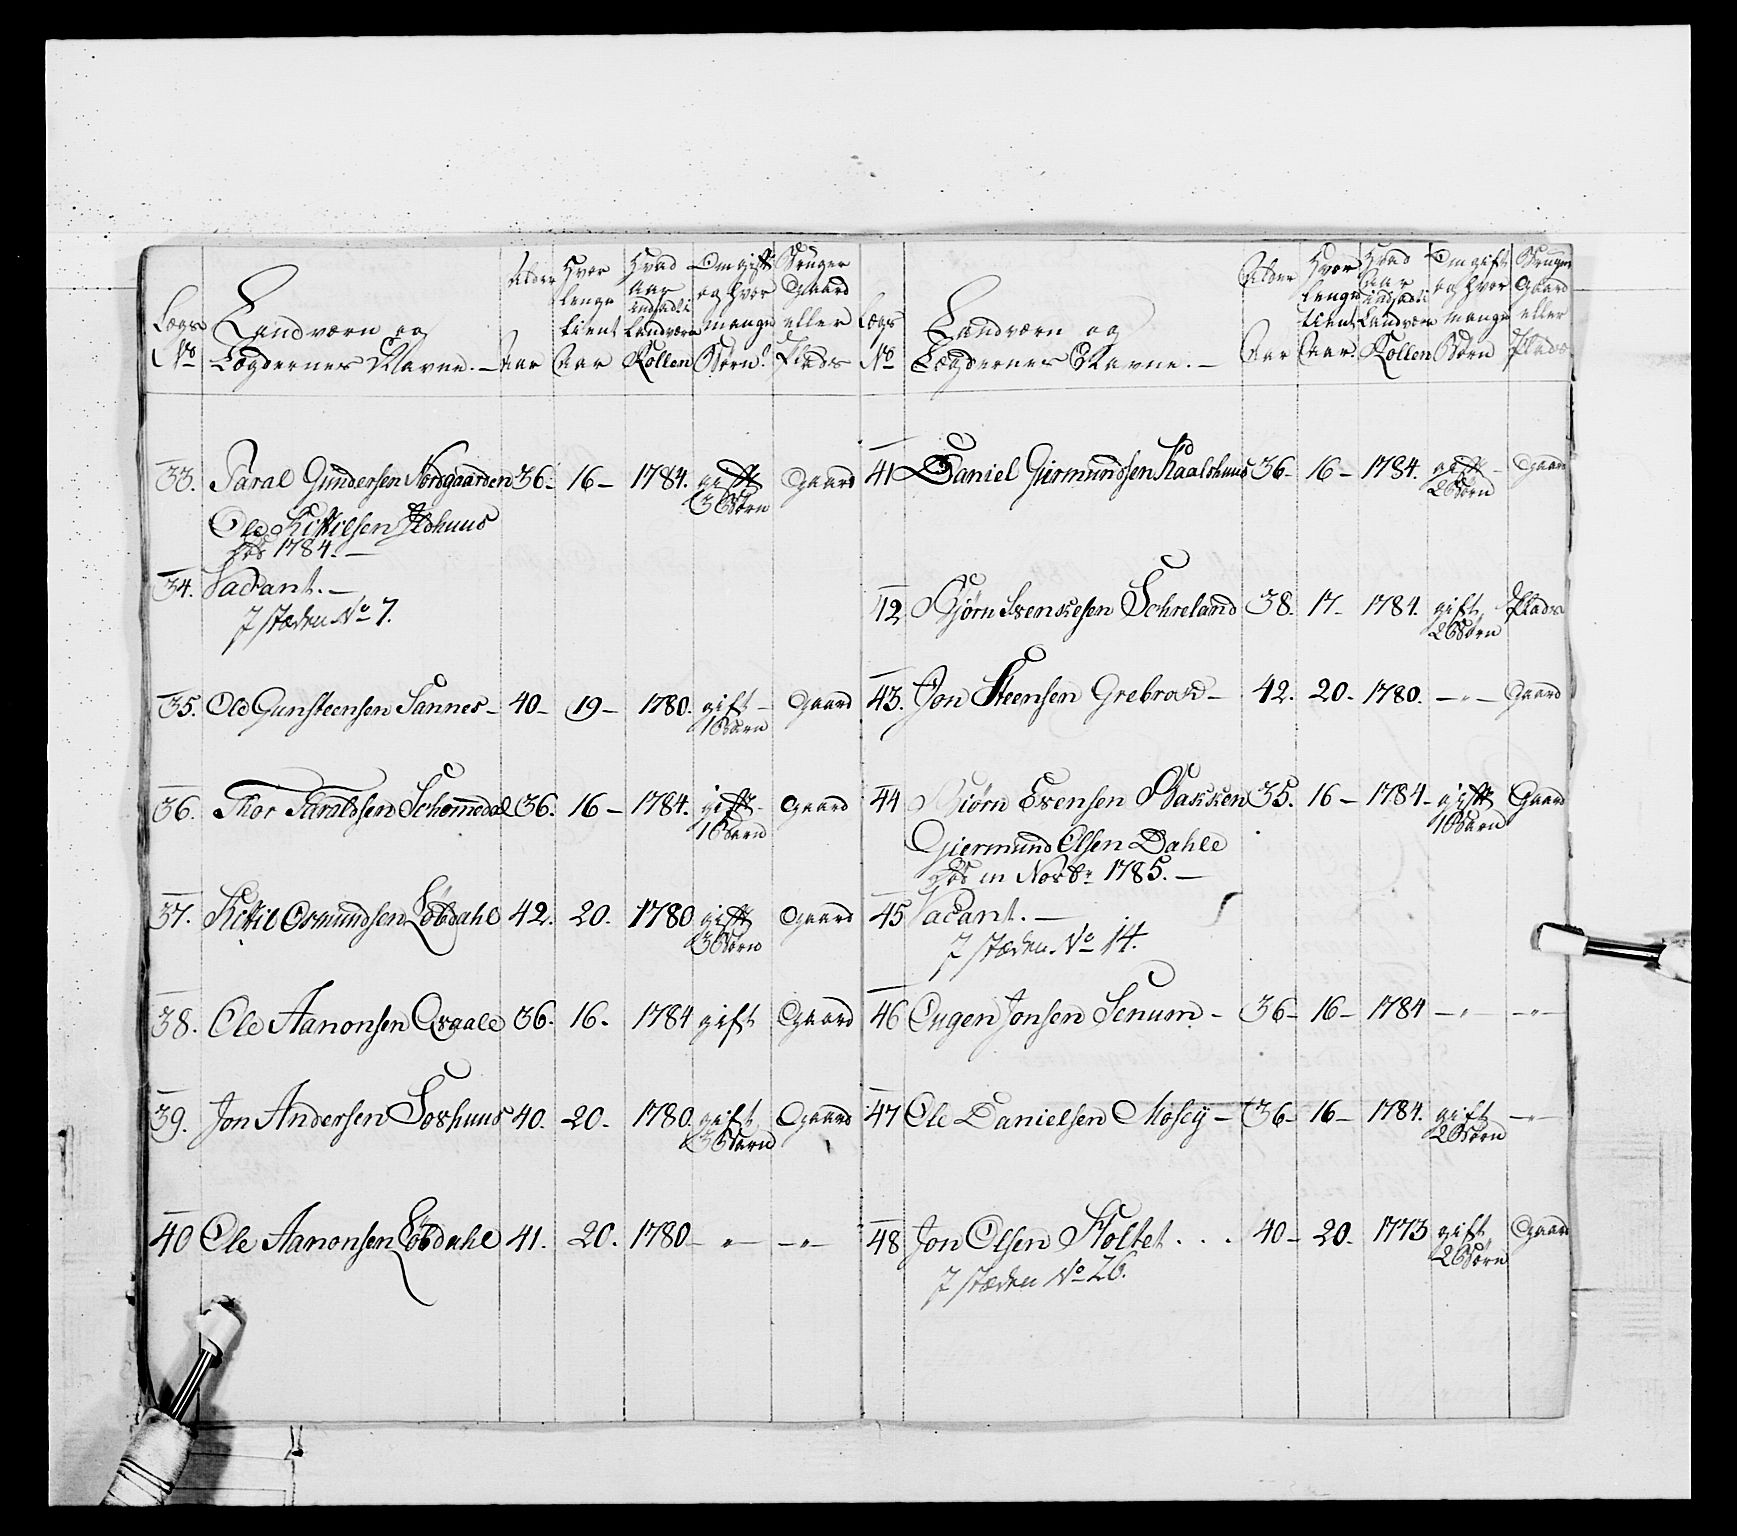 Lægs No
Landværn og Lægdernes Navne. —
Alder Aar
Hvor lenge tient Aar
Hvad Aar indsadt i Landværn Rollen
Om gift og hvor mange Børn?
Bruger Gaard eller Plads
33. Taral Gundersen Nordgaarden 36. 16 — 1784. gift 3 Børn Gaard
Ole Kittilsen
død 1784. —
34. Vacant. —
I stæden No 7.
35. Ole Gunsteensen Sannes — 40 — 19 — 1780. gift — 1 Barn Gaard
36. Thor Taraldsen Schomedal 36. 16 — 1784. gift — 1 Barn Gaard
37. Kittil Osmundsen Løbdahl 42. 20. 1780 gift 3 Børn Gaard
38. Ole Aanonsen Qvaale 36. 16. 1784 gift Gaard
39. Jon Andersen Forhuus 40. 20. 1780. gift 3 Barn Gaard
40 Ole Aanonsen Løbdahl 41. 20. 1780 — " — — " —
Lægs No
Landværn og Lægdernes Navne. —
Alder Aar
Hvor lenge tient Aar.
Hvad Aar indsadt i Landværn Rollen
Om gift og hvor mange Børn
Bruger Gaard eller Plads.
41 Daniel Giermundsen Kaalshuus 36 — 16 — 1784. gift — 2 Børn Gaard
42 Bjørn Svenkesen Schreland 38. 17 — 1784. gift 2 Børn Plads
43. Jon Steensen Grebrok — 42. 20 — 1780. — " — Gaard
44 Biørn Evensen Bakken 35. 16 — 1784 — gift 1 Barn Gaard
Giermund Olsen Dahle
død in Novbr 1785. —
45 Vacant. —
I stæden No 14.
46 Eugen Jonsen Senum — 36 — 16 — 1784 — " — — " —
47 Ole Danielsen Mosey — 36 — 16 — 1784. gift 2 Børn — " —
48 Jon Olsen Stoltet . . . 40 — 20 — 1773 gift 2 Børn Gaard
I stæden No 26.